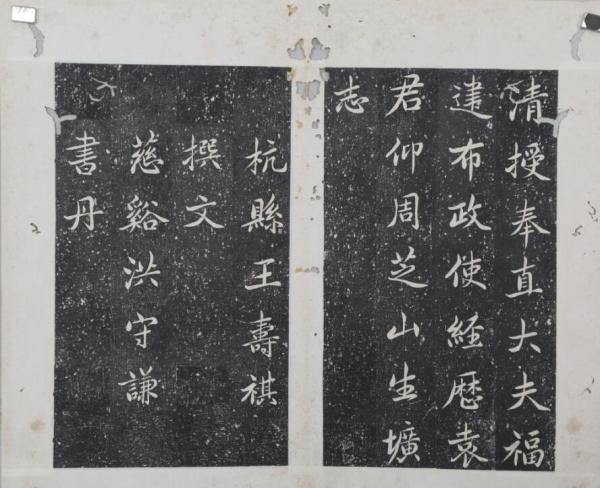 清授奉直大夫福
建布政使經歷袁
君仰周芝山生壙
志
杭縣王壽祺
撰文
慈谿洪守謙
書丹